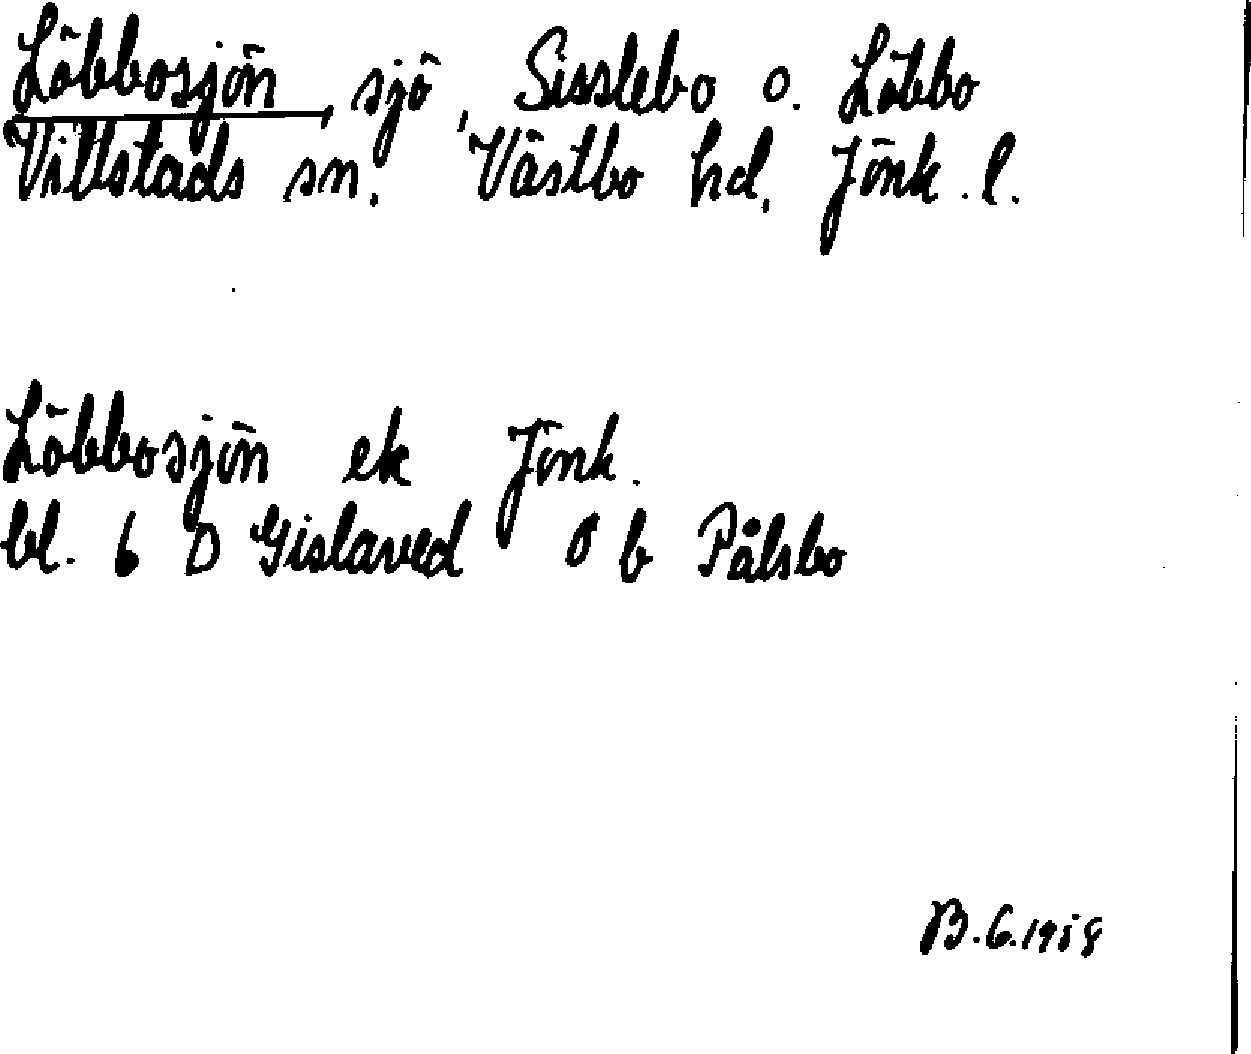 Löbbosjön, sjö, Sisslebo o. Löbbo
Villstads sn. Västbo hd. Jönk. l.
Löbbosjön ek Jönk.
bl. 6 D Gislaved 0 b Pålsbo
B.G. 1958